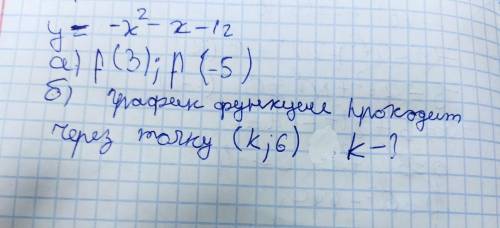 y = -x² - x - 12
а) f(3); f(-5)
б) график функции проходит
через точку (k; 6) k - ?